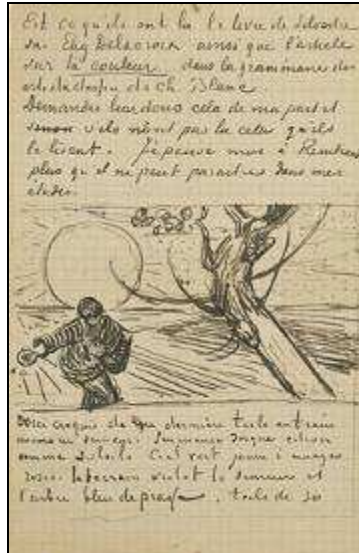 Est ce qu'ils ont lu le livre de Silvestre
sur Eug Delacroix ainsi que l'article
sur la couleur dans la grammaire des
arts du dessin de Ch Blanc
Demandez leur donc cela de ma part et
sinon s'ils n'ont pas lu cela qu'ils
le lisent. Je pense moi à Rembrandt
plus qu'il ne peut paraître dans mes
études.
Voici croquis de ma dernière toile en train
encore un semeur. Immense disque citron
comme soleil. Ciel vert jaune à nuages
roses. le terrain violet le semeur et
l'arbre bleu de prusse. toile de 30